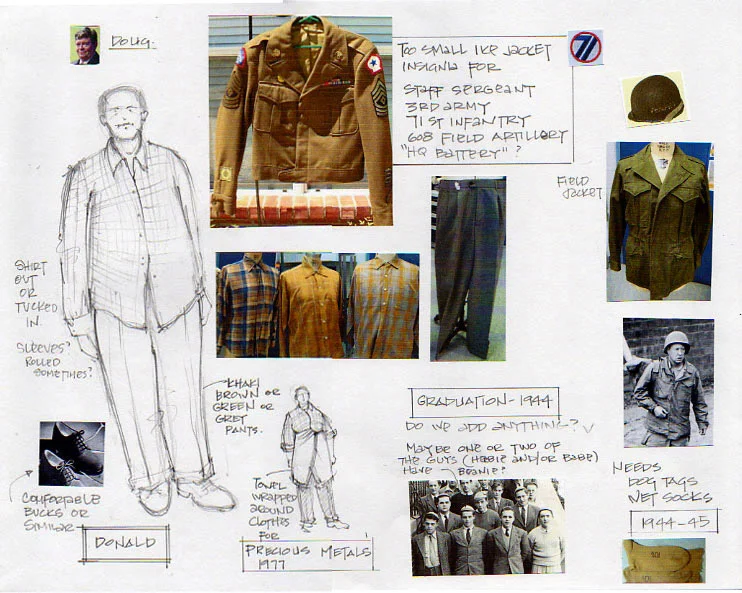 DOUG.
TOO SMALL IKE JACKET
INSIGNIA FOR
STAFF SERGEANT
3RD ARMY
71ST INFANTRY
608 FIELD ARTILLERY
"HQ BATTERY" ?
71
FIELD
JACKET
SHIRT
OUT
OR
TUCKED
IN.
SLEEVES?
ROLLED
SOMETIMES?
KHAKI
BROWN OR
GREEN OR
GREY
PANTS.
COMFORTABLE
BUCKS OR
SIMILAR
DONALD
TOWEL
WRAPPED
AROUND
CLOTHES
FOR
PRECIOUS METALS
1977
GRADUATION - 1944
DO WE ADD ANYTHING?
MAYBE ONE OR TWO OF
THE GUYS (HOBIE AND/OR BABE)
HAVE BEANIE?
NEEDS
DOG TAGS
WET SOCKS
1944-45